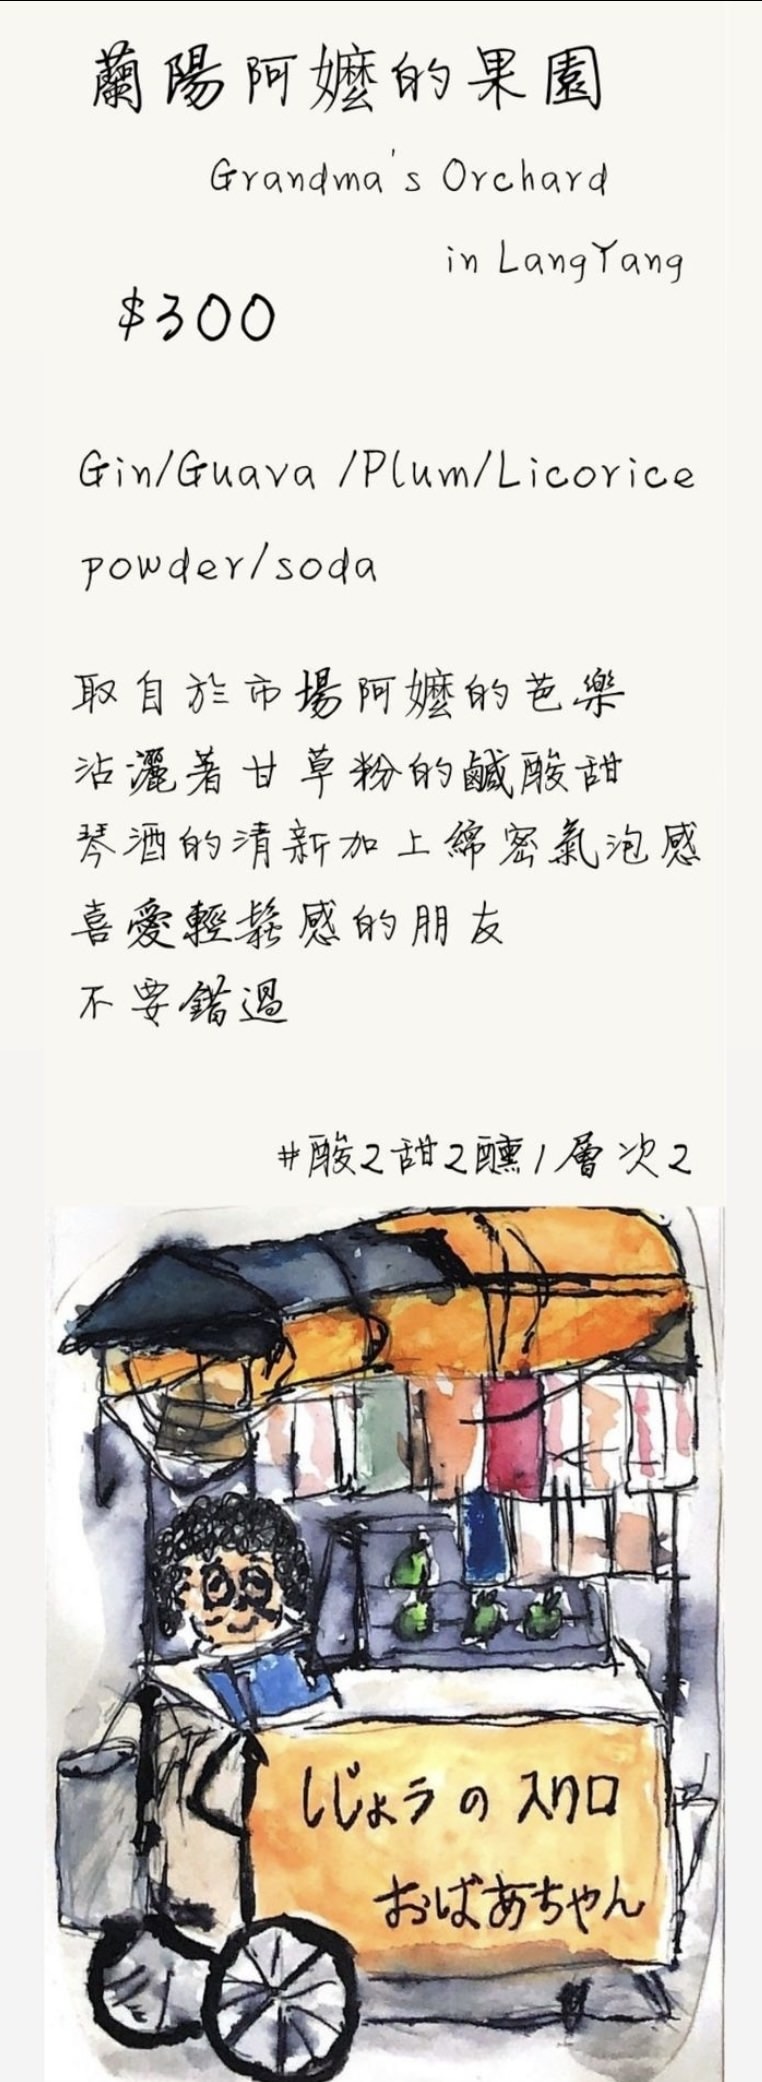 蘭陽阿嬤的果園
Grandma's Orchard
in LangYang
$300
Gin/Guava /Plum/Licorice
powder/soda
取自於市場阿嬤的芭樂
沾灑著甘草粉的鹹酸甜
琴酒的清新加上綿密氣泡感
喜愛輕鬆感的朋友
不要錯過
#酸2甜2醺1層次2
しじょうの スクロ
おばあちゃん